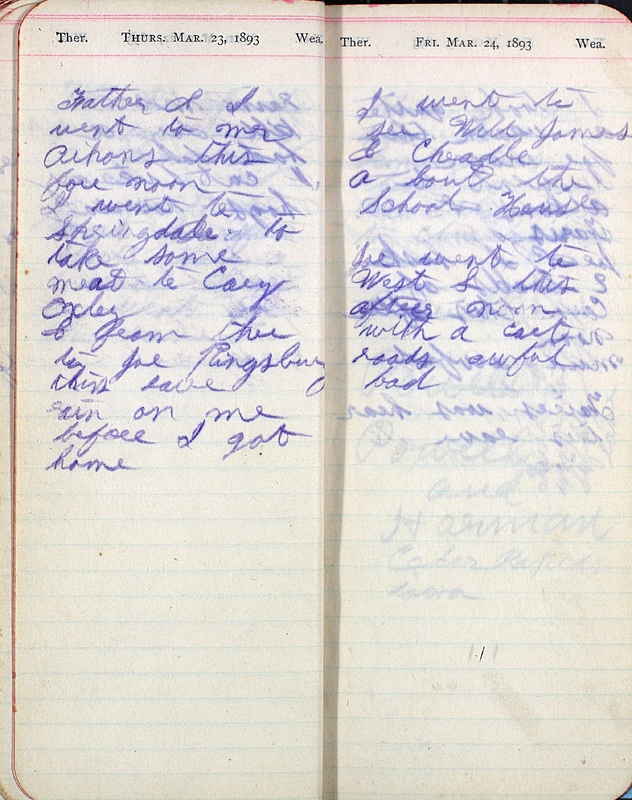 Ther. THURS. MAR. 23, 1893 Wea.
Father & I
went to mr
Aikons this
fore noon
I went to
Springdale to
take some
meat to Cary
Oxley
& from thee
to Joe Pingsbury
this eave
rain on me
before I got
home
Ther. FRI. MAR. 24, 1893 Wea.
I went to
see Will James
& Cheadle
a bout the
School House
he went to
West L this
after noon
with a cart
roads awful
bad
Powell
and
Harman
Cedar Rapids
Iowa